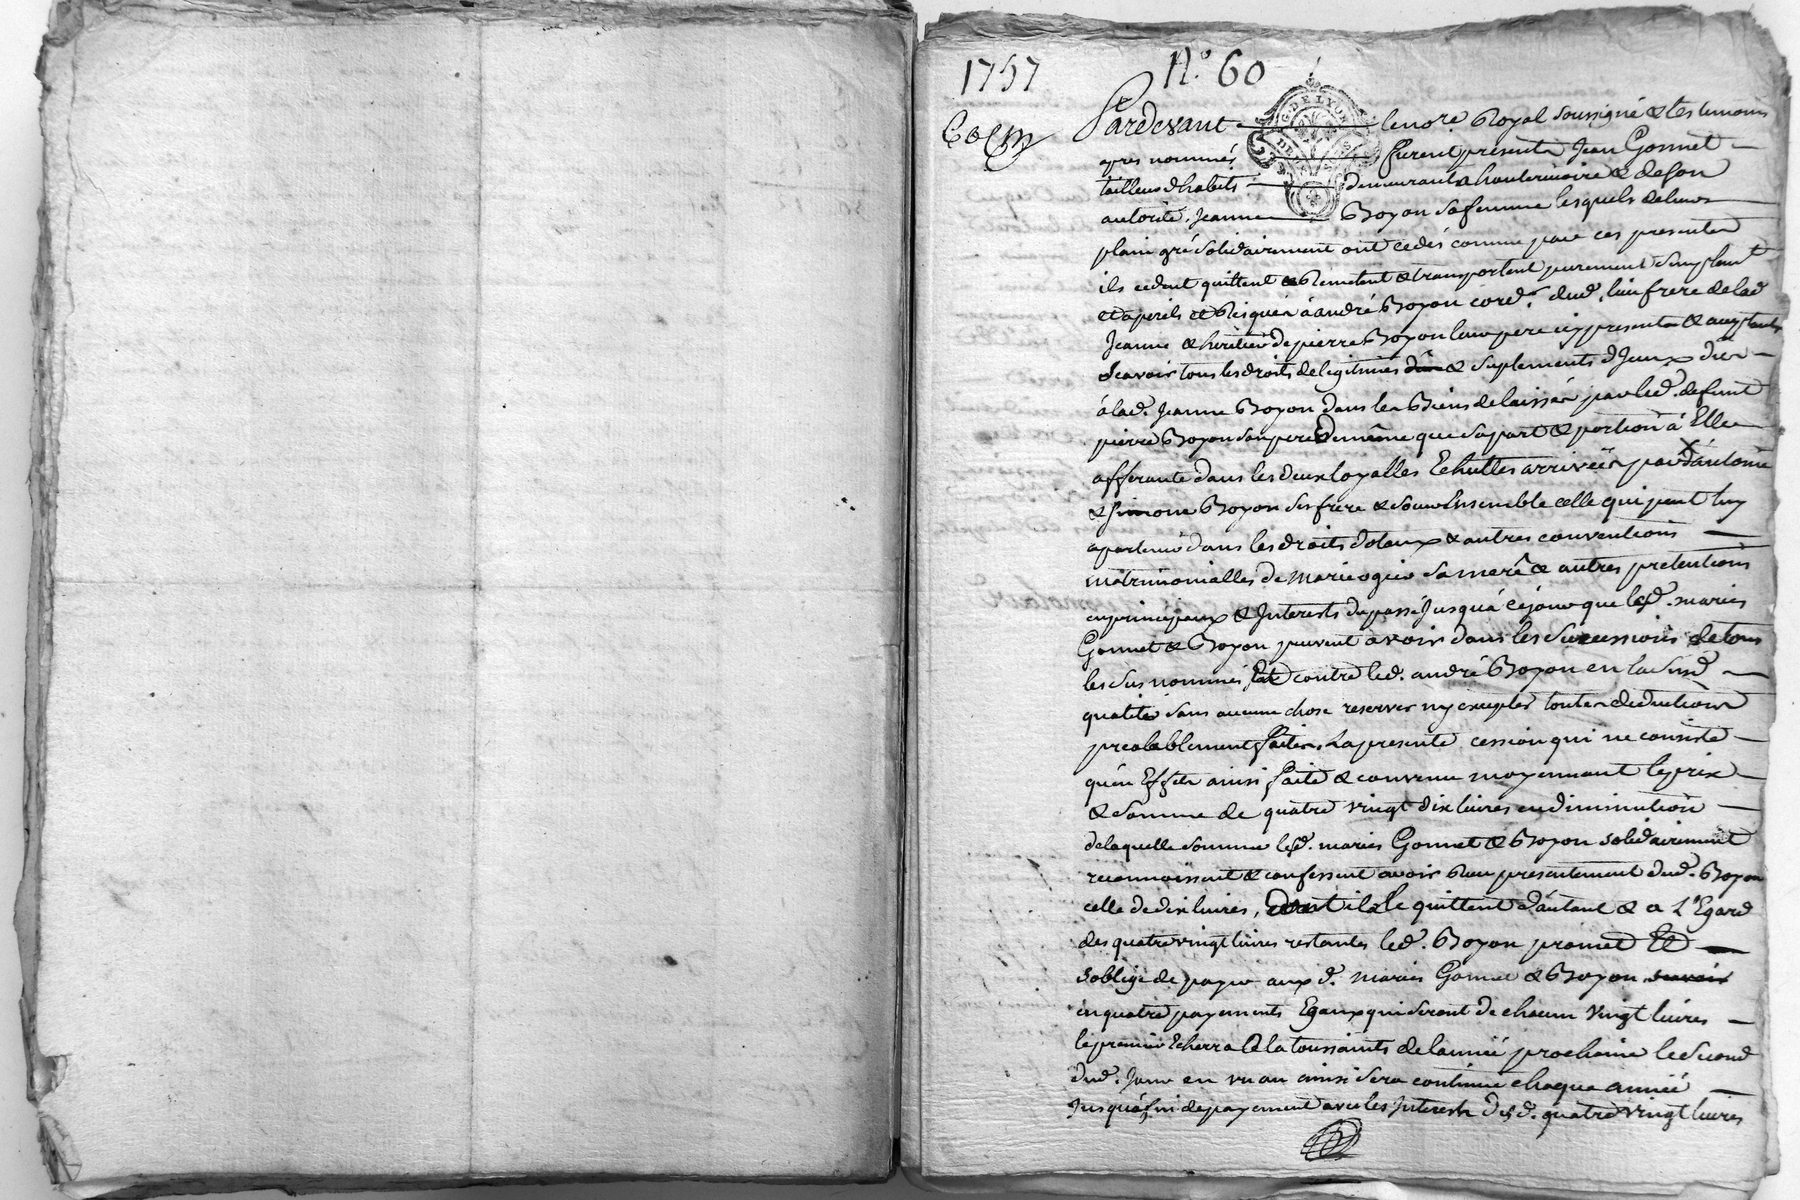 1757 N.° 60
G. DE LYON
Pardevant le no.re Royal soussigné & les temoins
apres nommés furent présents Jean Gonnet
tailleur d'habits demeurant a hauterivoire & de son
autorité Jeanne Boyon sa femme lesquels de leur
plain gré solidairement ont cedés comme par ces presentes
ils cedent quittent & Remetent & transportent purement simplem.t
et a perils et Risques à andré Boyon cord.r dud. lieu frere de lad
Jeanne & heritier de pierre Boyon leur pere icy present & acceptant
Scavoir tous les droits de legitimes & suplements d'Jceux dûes
à lad. Jeanne Boyon dans les Biens delaissés par led. defunt
pierre Boyon son pere De même que sa part & portion à Elle
afferante dans les deux loyalles Echuttes arrivées par d'antoine
& simone Boyon ses frere & soeur Ensemble celle qui peut luy
apartenir dans les droits dotaux & autres conventions
matrimonialles de Marie ogier sa mere & autres pretentions
en principaux & Interests du passé Jusqu'à ce jour que lesd. maries
Gonnet & Boyon peuvent avoir dans les successions de tous
les sus nommés contre led. andré Boyon en la susd
qualité sans aucune chose reserver ny excepter toutes deductions
prealablement faites, la presente cession qui ne consiste
qu'en Effets ainsi faite & convenue moyennant le prix
& somme de quatre vingt dix livres en diminution
de laquelle somme lesd. maries Gonnet & Boyon solidairement
reconnoissent & confessent avoir Reçu presentement dud. Boyon
celle de dix livres, dont ils le quittent d'autant & a L'Egard
des quatre vingt livres restantes led. Boyon promet &
s'oblige de payer aux d. maries Gonnet & Boyon scavoir
en quatre payements Egaux qui seront de chacun vingt livres
le premier Echerra a la toussaints de l'année prochaine le second
dud. Jour en un an ainsi sera continué chaque année
Jusqu'à fin de payement avec les Interests desd. quatre vingt livres